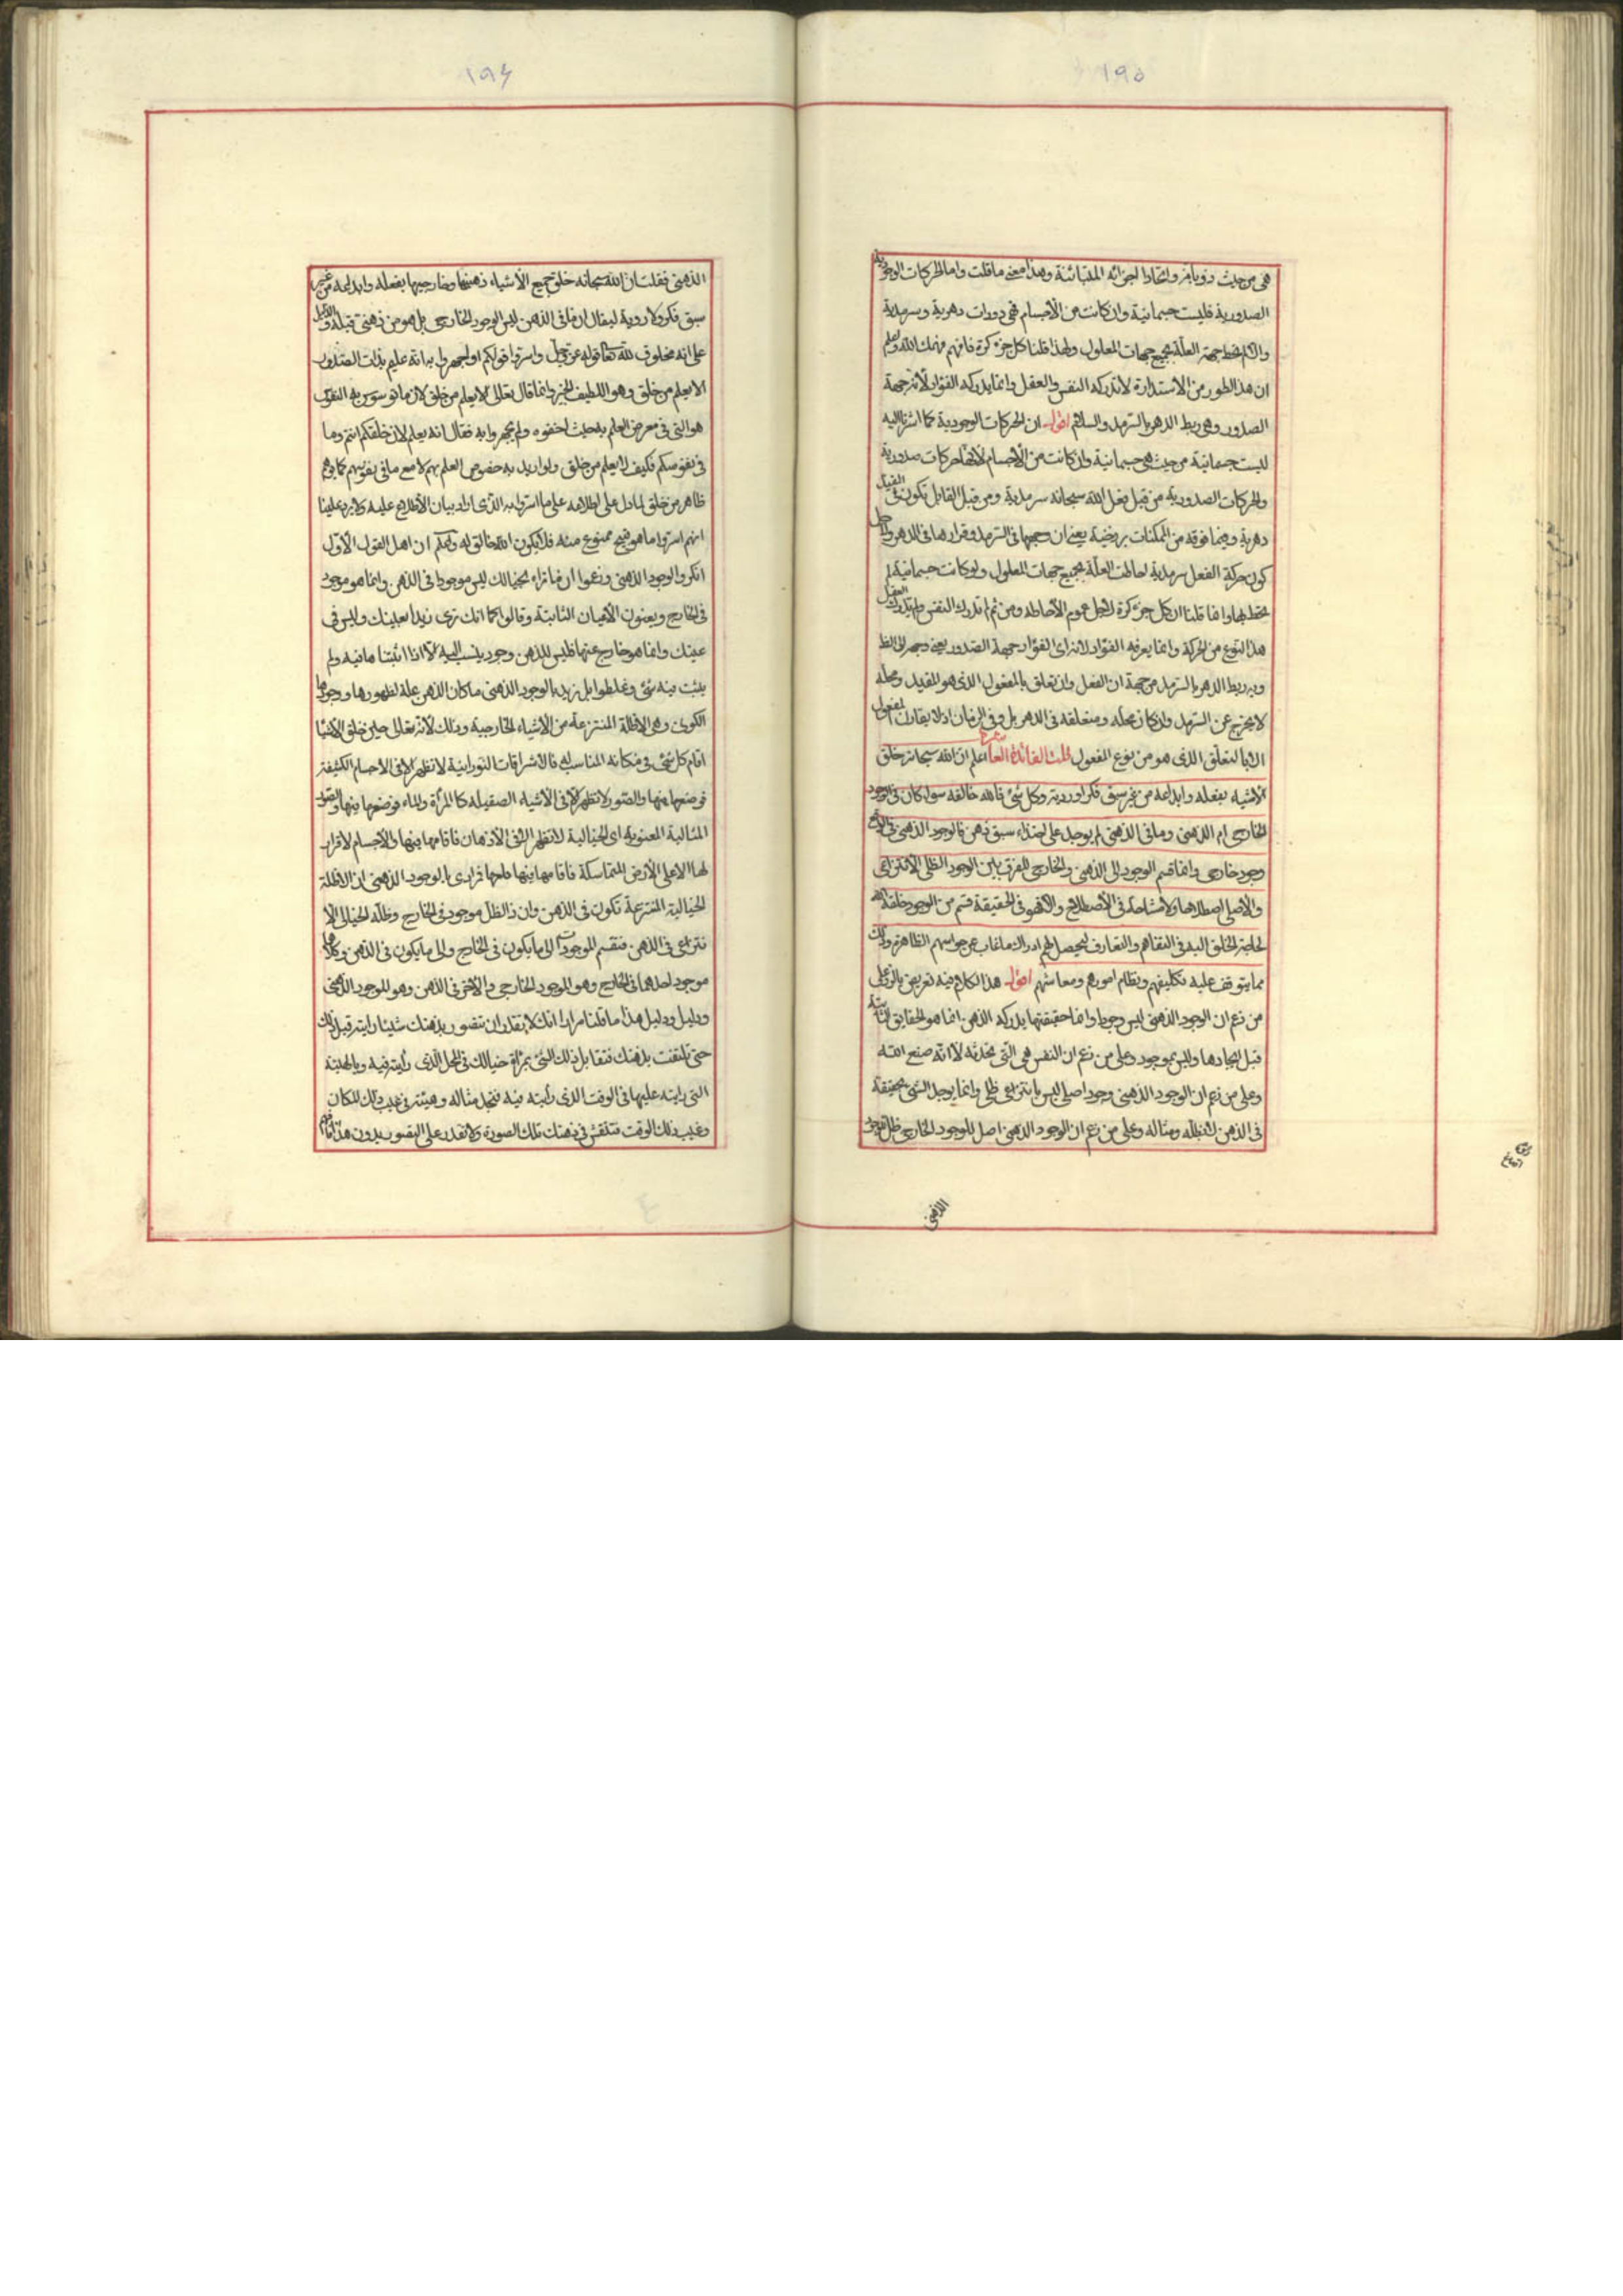 ١٩٥
هى من حيث ذوبانه واتحاد اجزائه المتباينة وهذا معنى ما قلت واما الحركات الوجودية
الصدورية فليست جسمانية وان كانت من الأجسام فهى دورات دهرية وسرمدية
والا لم تحط جهة العلة بجميع جهات المعلول ولهذا قلنا كل جزء كرة فافهم فهمك الله واعلم
ان هذا الطور من الاستدارة لا تدركه النفس والعقل وانما يدركه الفؤاد لانه جهة
الصدور وهى ربط الدهر بالسرمد والسلام اقول ان الحركات الوجودية كما اشرنا اليه
ليست جسمانية من حيث هى جسمانية وان كانت من الأجسام لانها حركات صدورية
والحركات الصدورية من قبل فعل الله سبحانه سرمدية ومن قبل القابل تكون فى القبل
دهرية وفيما فوقه من الممكنات برزخية يعنى ان وجهها فى السرمد وقرارها فى الدهر ولاجل
كون حركة الفعل سرمدية احاطت العلة بجميع جهات المعلول ولو كانت جسمانية لم
تحط بها وانما قلنا ان كل جزء كرة لاجل عموم الأحاطة ومن ثم لم تدرك النفس ولم يدرك العقل
هذا النوع من الحركة وانما يعرفه الفؤاد لانه اى الفؤاد جهة الصدور يعنى وجهه الى الفعل
وبه ربط الدهر بالسرمد من جهة ان الفعل وان تعلق بالمفعول الذى هو المقيد ومحله
لا يخرج عن السرمد وان كان محله ومتعلقه فى الدهر بل وفى الزمان اذ لا يقارن المفعول
الا بالتعلق الذى هو من نوع المفعول قلت الفائدة العاشرة اعلم ان الله سبحانه خلق
الأشياء بفعله وابداعه من غير سبق فكر او روية وكل شئ فالله خالقه سواء كان فى الوجود
الخارجى ام الذهنى وما فى الذهنى لم يوجد على احتذاء سبق ذهن فالوجود الذهنى فى الواقع
وجود خارجى وانما قسم الوجود الى الذهنى والخارجى للفرق بين الوجود الظلى الانتزاعى
والأصلى اصطلاحا ولا مشاحة فى الأصطلاح والا فهو فى الحقيقة قسم من الوجود خلقه الله
لحاجة الخلق اليه فى التفاهم والتعارف ليحصل لهم ادراك ما غاب عن حواسهم الظاهرة وذلك
مما يتوقف عليه تكليفهم ونظام امورهم ومعاشهم اقول هذا الكلام فيه تعريض بالرد على
من زعم ان الوجود الذهنى ليس وجودا وانما حقيقتها يدركه الذهن انما هو الحقايق الثابتة
قبل ايجادها وليس بموجود وعلى من زعم ان النفس هى التى تحدثه لا انه صنع الله
وعلى من زعم ان الوجود الذهنى وجود اصلى ليس بانتزاعى ظلى وانما يوجد الشئ بحقيقة
فى الذهن لا بظله ومثاله وعلى من زعم ان الوجود الذهنى اصل للوجود الخارجى ظل للوجود
الذهنى
١٩٦
الذهنى فقلت ان الله سبحانه خلق جميع الأشياء ذهنيها وخارجيها بفعله وابداعه من غير
سبق فكر ولا روية ليقال ان ما فى الذهن ليس الوجود الخارجى بل هو من ذهنى قبله والدليل
على انه مخلوق لله تعالى قوله عز وجل واسروا قولكم او اجهروا به انه عليم بذات الصدور
الا يعلم من خلق وهو اللطيف الخبير وانما قال تعالى الا يعلم من خلق لان ما توسوس به النفوس
هو التى فى معرض العلم به حيث اخفوه ولم يجهروا به فقال انه يعلم لان خلقكم انتم وما
فى نفوسكم فكيف لا يعلم من خلق ولو اريد به خصوص العلم بهم لا مع ما فى نفوسهم كما يوهم
ظاهر من خلق لما دل على اطلاعه على ما اسروا به الذى اراد بيان الأطلاع عليه ولا يرد علينا
انهم اسروا ما هو قبيح ممنوع منه فلا يكون الله خالق له واعلم ان اهل القول الأول
انكروا الوجود الذهنى وزعموا ان ما تراه بخيالك ليس موجودا فى الذهن وانما هو موجود
فى الخارج ويعنون الأعيان الثابتة وقالوا كما انك ترى زيدا بعينك وليس فى
عينك وانما هو خارج عنها فليس للذهن وجود ينسب اليه الا اذا اثبتنا ما فيه ولم
يثبت فيه شئ وغلطوا بل نريد بالوجود الذهنى ما كان الذهن علة لظهورها ووجودها
الكونى وهى الأظلة المنتزعة من الأشياء الخارجية وذلك لانه تعالى حين خلق الأشياء
اقام كل شئ فى مكانه المناسب له فالأشراقات النورانية لا تظهر الا فى الاجسام الكثيفة
فوضعها فيها والصور لا تظهر الا فى الأشياء الصقيلة كالمرآة والماء فوضعها فيها والصور
المثالية المعنوية اى الخيالية لا تظهر الا فى الأذهان فاقامها فيها والأجسام لا قرار
لها الا على الأرض المتماسكة فاقامها فيها ... بالوجود الذهنى ان الأظلة
الخيالية المنتزعة تكون فى الذهن وان ذا الظل موجود فى الخارج وظله الخيالى الا
نتزاعى فى الذهن فتقسم الموجودات الى ما يكون فى الخارج والى ما يكون فى الذهن وكلاهما
موجود احدهما فى الخارج وهو الموجود الخارجى والآخر فى الذهن وهو الموجود الذهنى
ودليل هذا ما قلنا مرارا انك لا تقدر ان تتصور بذهنك شيئا رايته قبل ذلك
حتى تلتفت بذهنك فتقابل ذلك الشئ بمرآة خيالك فى المحل الذى رأيته فيه وبالهيئة
التى رايته عليها فى الوقت الذى رأيته فيه فتجد مثاله وهيئته فى غيب ذلك المكان
وغيب ذلك الوقت فتنتقش فى ذهنك تلك الصورة ولا تقدر على التصور بدون هذا